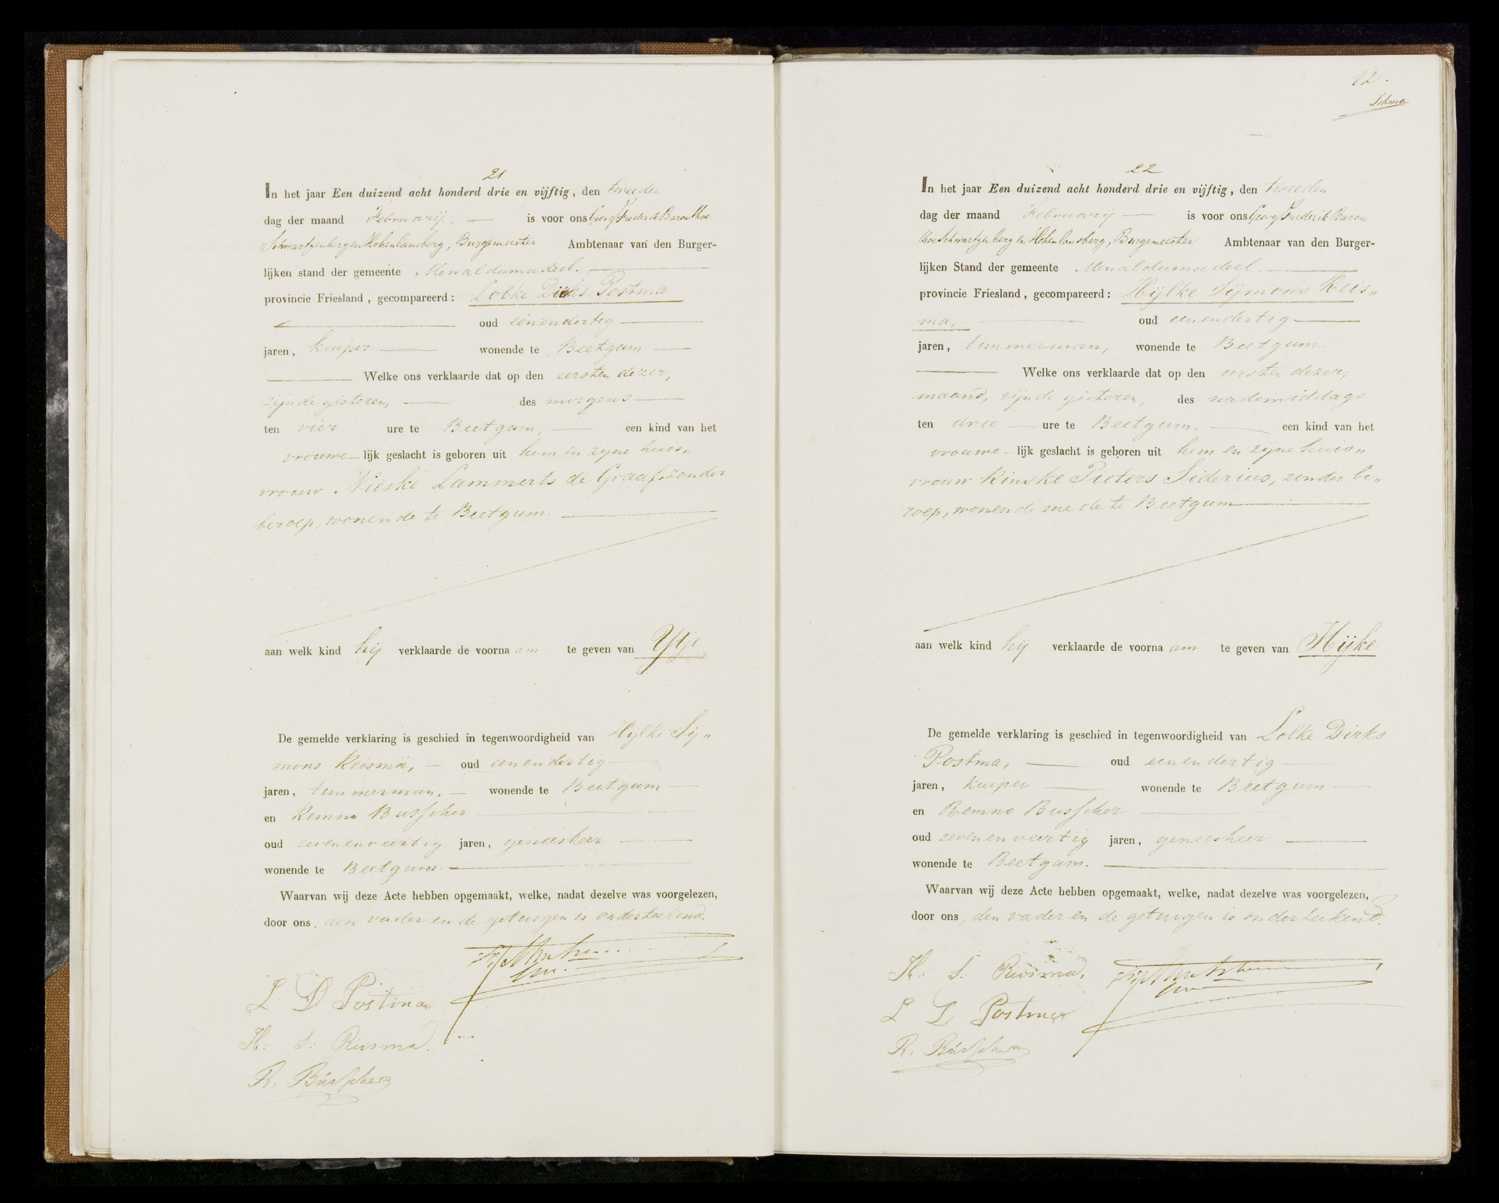 21
In het jaar Een duizend acht honderd drie en vijftig, den tweeden
dag der maand Februarij is voor ons Georg Frederik Baron thoe
Schwartzenberg en Hohenlansberg, Burgemeester Ambtenaar van den Burger-
lijken stand der gemeente Menaldumadeel.
provincie Friesland, gecompareerd: Lolke Dirks Postma
oud eenendertig
jaren, kuiper wonende te Beetgum
Welke ons verklaarde dat op den eersten dezer,
zijnde gisteren, des morgens
ten vier ure te Beetgum, een kind van het
vrouwe lijk geslacht is geboren uit hem en zijne huis„
vrouw Nieske Lammerts de Graaf, zonder
beroep, wonende te Beetgum.
aan welk kind hij verklaarde de voorna am te geven van Ytje
De gemelde verklaring is geschied in tegenwoordigheid van Hylke Sij„
mons Reisma, oud eenendertig
jaren, timmerman, wonende te Beetgum
en Remno Busscher
oud zevenenveertig jaren, geneesheer
wonende te Beetgum.
Waarvan wij deze Acte hebben opgemaakt, welke, nadat dezelve was voorgelezen,
door ons, den vader en de getuigen is onderteekend.
L D Postma
H: S: Reisma.
R. Busscher
12.
22
In het jaar Een duizend acht honderd drie en vijftig, den tweeden
dag der maand Februarij is voor ons Georg Frederik Baron
thoe Schwartzenberg en Hohenlansberg, Burgemeester Ambtenaar van den Burger-
lijken Stand der gemeente Menaldumadeel.
provincie Friesland, gecompareerd: Hijlke Sijmons Reis„
ma, oud eenendertig
jaren, timmerman, wonende te Beetgum
Welke ons verklaarde dat op den eersten dezer
maand, zijnde gisteren, des nademiddags
ten drie ure te Beetgum. een kind van het
vrouwe lijk geslacht is geboren uit hem en zijne huis„
vrouw Rinske Pieters Siderius, zonder be„
roep, wonende mede te Beetgum
aan welk kind hij verklaarde de voorna am te geven van Hijke
De gemelde verklaring is geschied in tegenwoordigheid van Lolke Dirks
Postma, oud eenendertig
jaren, kuiper wonende te Beetgum
en Remno Busscher
oud zevenenveertig jaren, geneesheer
wonende te Beetgum.
Waarvan wij deze Acte hebben opgemaakt, welke, nadat dezelve was voorgelezen,
door ons, den vader en de getuigen is onderteekend.
H: S. Reisma.
L D Postma
R. Busscher